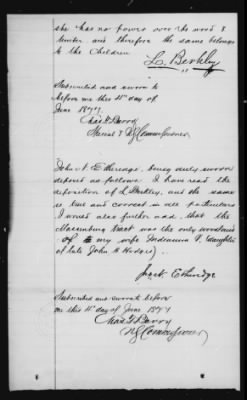 she has no power over the wood &
timber and therefore the same belongs
to the Children
L. Berkley
Subscribed and sworn to
before me this 11" day of
June 1879
Chas. G. Barry
Special & US Commissioner
John A. Etheredge, being duly sworn
deposed as follows. I have read the
deposition of L Berkley, and the same
is true and correct in all particulars
I would also further add, that the
tract was the only woodland
of my wife Indianna F. daughter
of late John Hodges
Jno A. Etheredge
Subscribed and sworn to before
me this 11" day of June 1879
Chas. G. Barry
US Commissioner